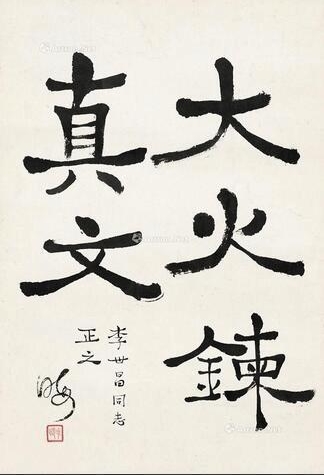 大火鍊
真文
李世昌同志
正之